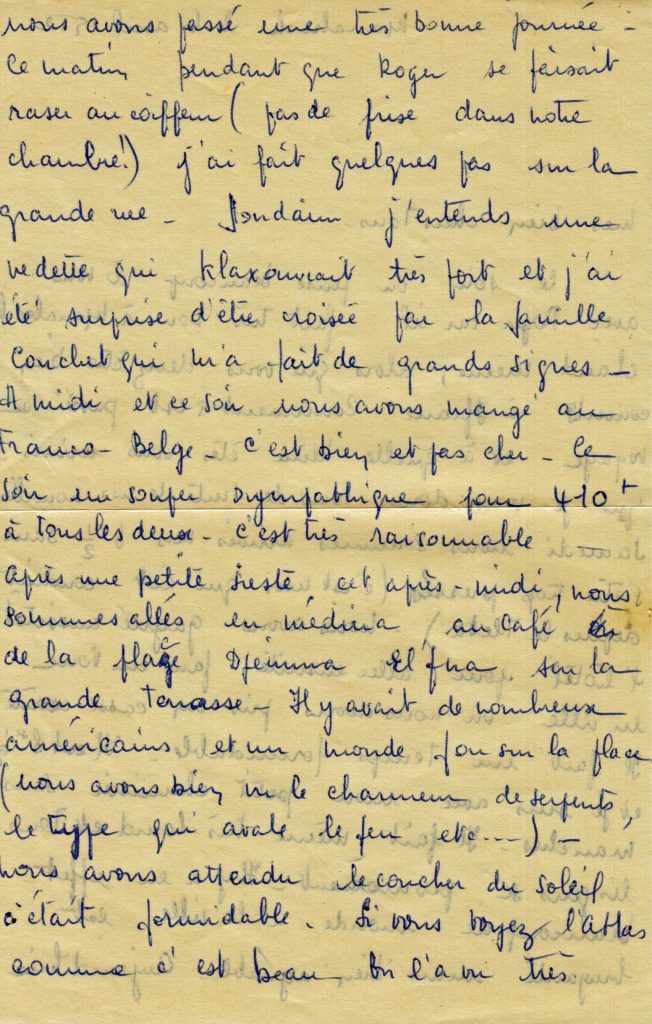 nous avons passé une très bonne journée -
Ce matin, pendant que Roger se faisait
raser au coiffeur ( pas de prise dans notre
chambre!) j'ai fait quelques pas sur la
grande rue - Soudain j'entends une
vedette qui klaxonnait très fort et j'ai
été surprise d'être croisée par la famille
Couchet qui m'a fait de grands signes -
A midi et ce soir nous avons mangé au
Franco-Belge - C'est bien, et pas cher - Ce
soir un souper sympathique pour 410
à tous les deux - c'est très raisonnable -
Après une petite sieste cet après-midi, nous
sommes allés en médina, au café
de la place Djemma El'fna sur la
grande terrasse - Il y avait de nombreux
américains et un monde fou sur la place
(nous avons bien vu le charmeur de serpents,
le type qui avale le feu etc...) -
Nous avons attendu le coucher du soleil
c'était formidable. Si vous voyez l'Atlas
comme c'est beau - On l'a vu très